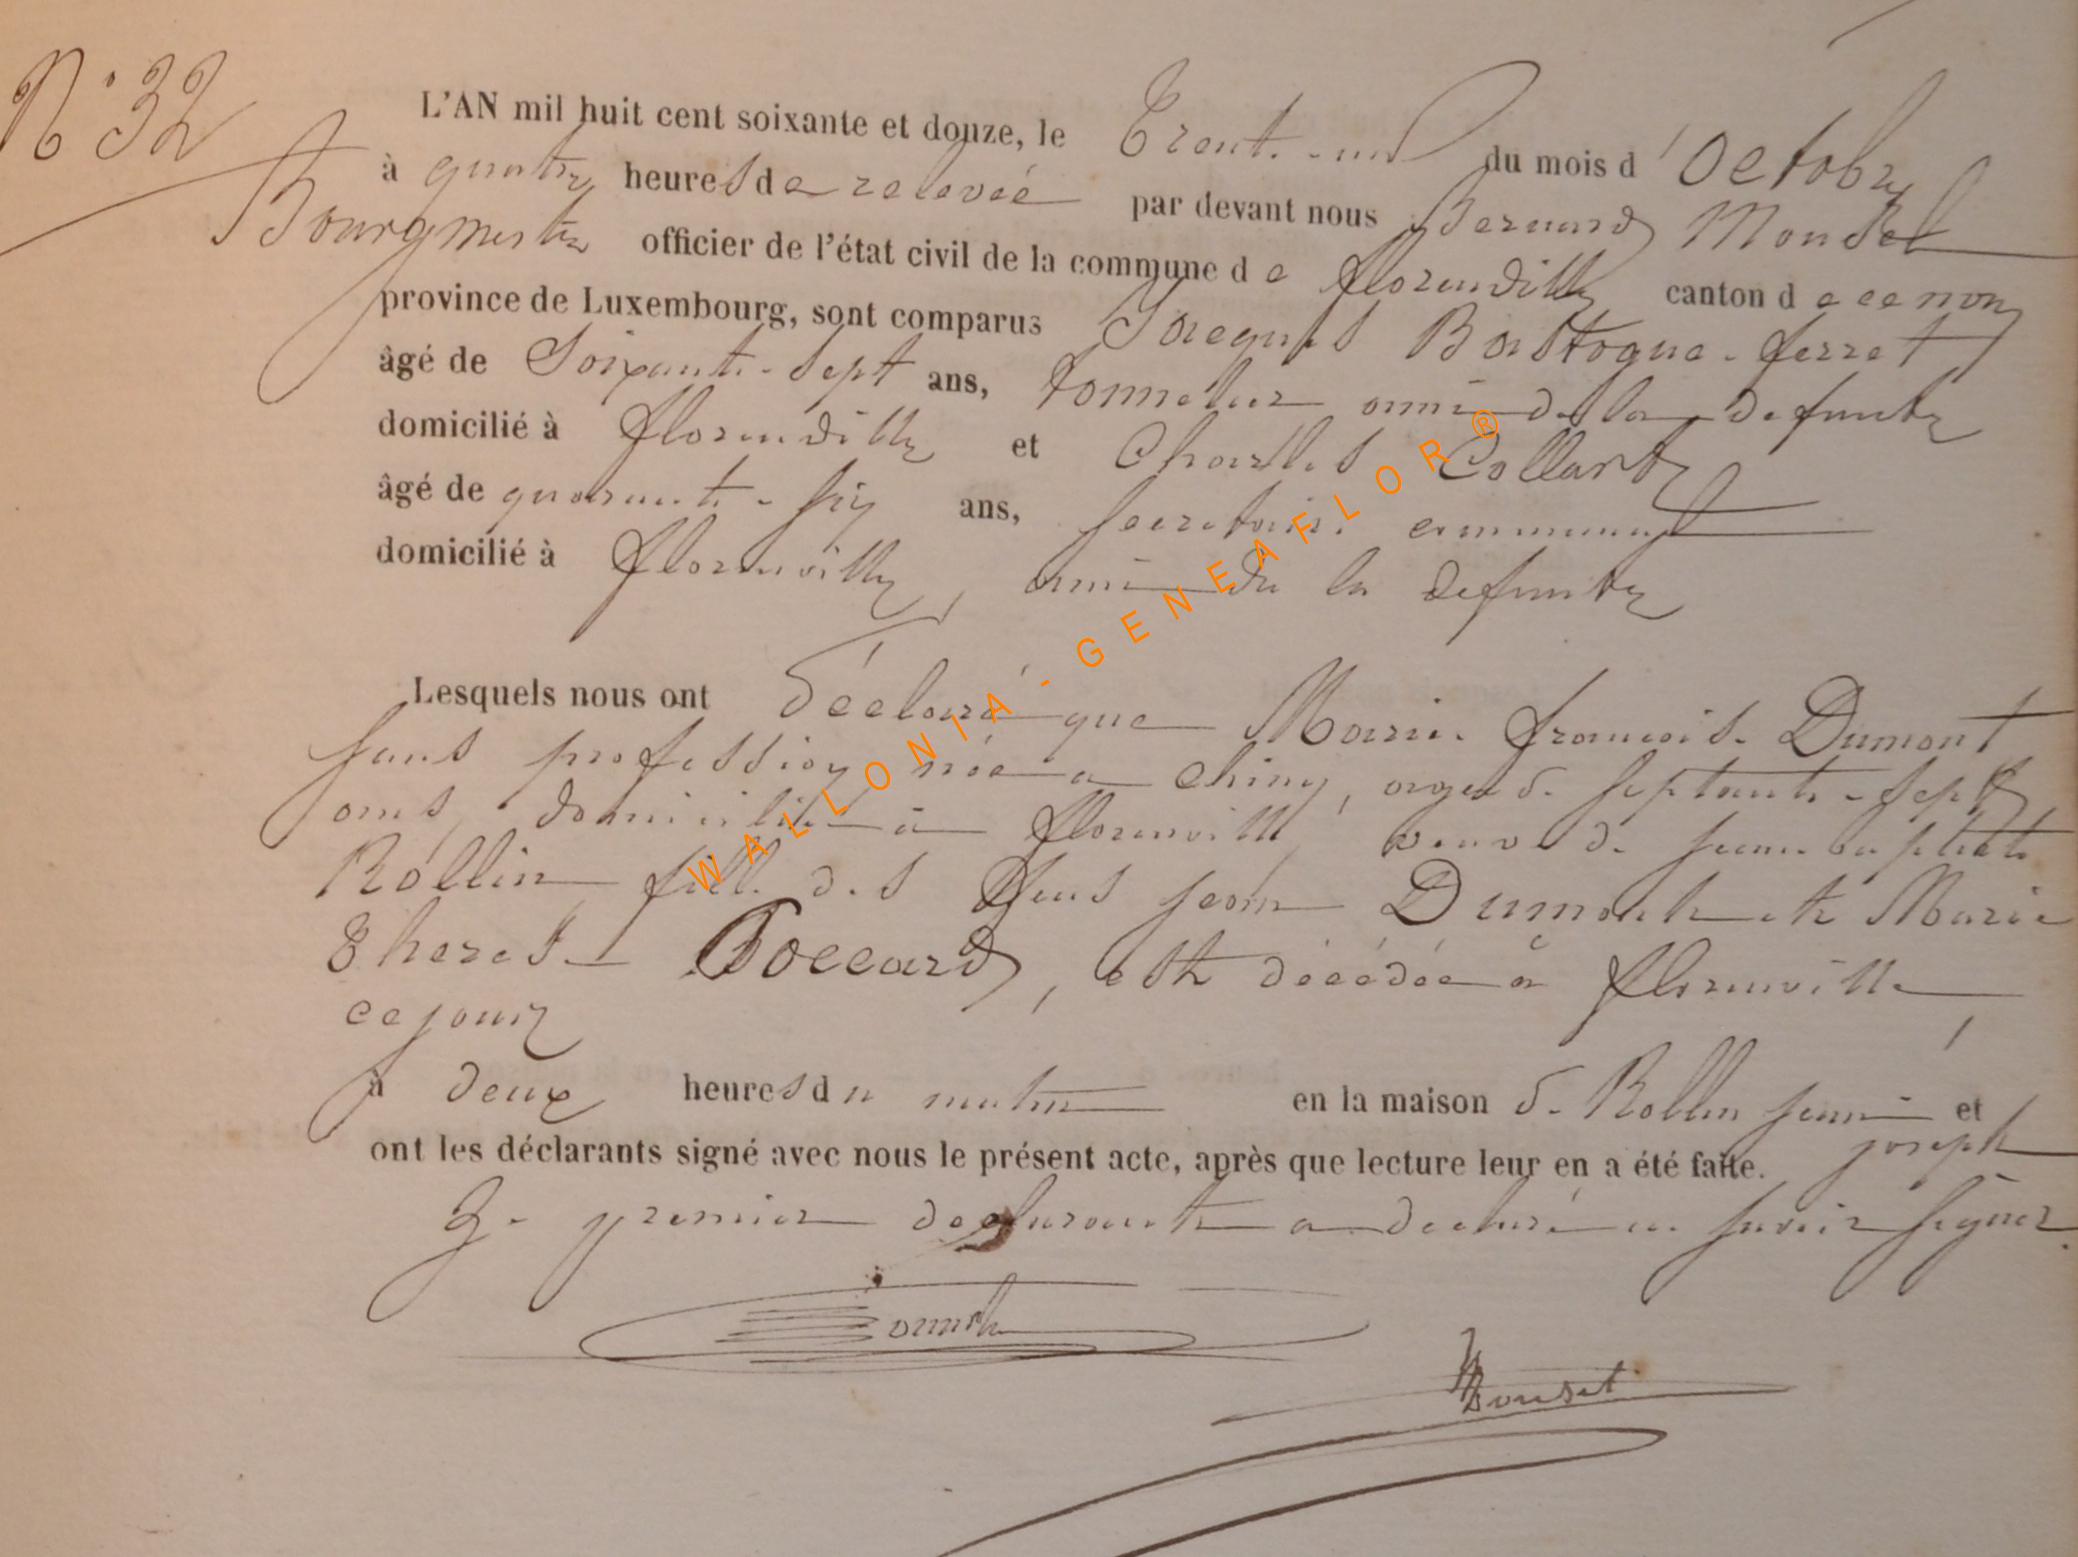 N° 32
L'AN mil huit cent soixante et douze, le Trente-un du mois d'Octobre
à quatre heures de relevée par devant nous Bernard Mousel
Bourgmestre officier de l'état civil de la commune de florenville canton de ce nom
province de Luxembourg, sont comparus Jacques Bastogne-ferret
âgé de Soixante-Sept ans, tonnelier ami de la defunte
domicilié à florenville et Charles Collart
âgé de quarante-six ans, secretaire communal
domicilié à florenville, ami de la defunte
Lesquels nous ont déclaré que Marie françoise Dumont
sans profession née a Chiny, agée de septante-sept
ans, domiciliée à florenville veuve de jean baptiste
Rollin fille des feus jean Dumont et Marie
Therese Boccard, est décédée a florenville
ce jour
à deux heures du matin en la maison de Rollin jean et
joseph
ont les déclarants signé avec nous le présent acte, après que lecture leur en a été faite.
Le premier declarant a declaré ne savoir signer.
WALLONIA-GENEAFLOR®